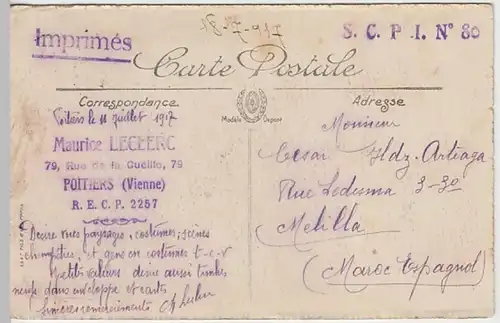 Imprimés
S. C. P. I. N° 80
Carte Postale
Correspondance
Adresse
Modèle Déposé
Poitiers le 11 juillet 1917
Maurice LECLERC
79, Rue de la Cueille, 79
POITIERS (Vienne)
R. E. C. P. 2257
Desire vues paysages, costumes, scènes
champêtres, et genre en costumes t-c-v
Petites valeurs désire aussi timbres
neufs dans enveloppe et carte
Sincères remerciements
Monsieur
César Hdz. Artiaga
Rue Ledesma 3-3º
Melilla
(Maroc Espagnol)